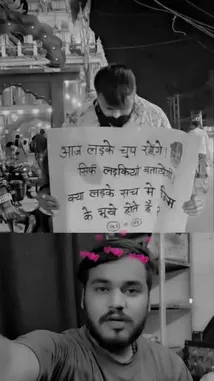 आज लड़के चुप रहेंगे।
सिर्फ लड़कियाँ बतायेंगी
क्या लड़के सच मे जिस्म
के भूखे होते है ?